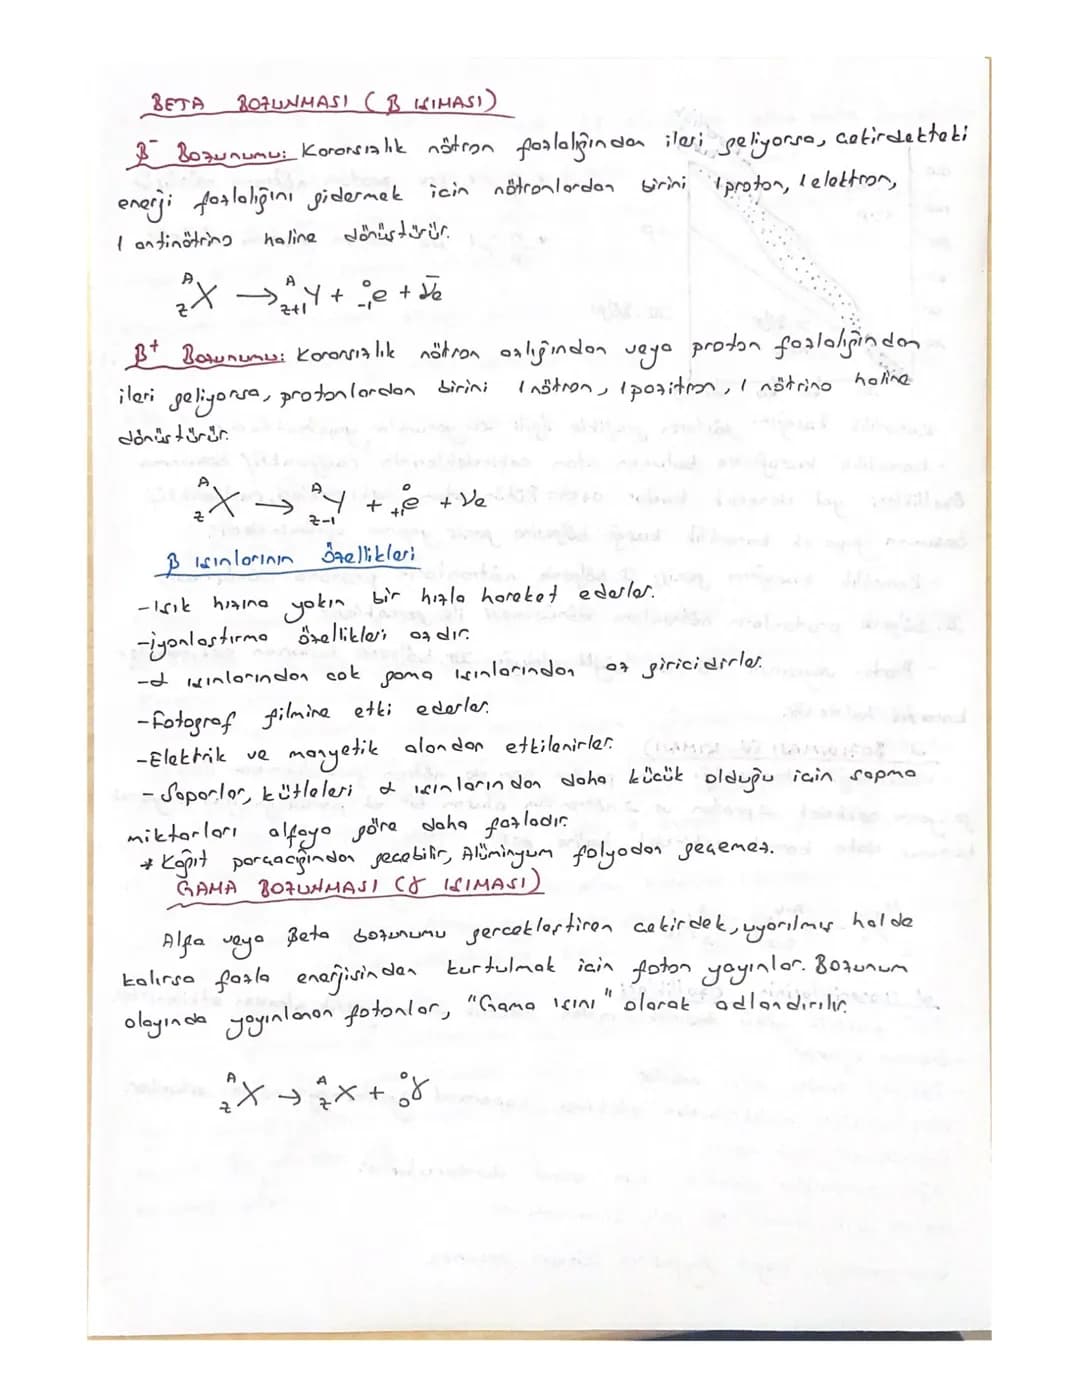 BETA BOZUNMASI (β IŞIMASI)
β⁻ Bozunumu: Kararsızlık nötron fazlalığından ileri geliyorsa, çekirdekteki
enerji fazlalığını gidermek için nötronlardan birini 1 proton, 1 elektron,
1 antinötrino haline dönüştürür.
ᴬ_Z X → ᴬ_Z+1 Y + ⁰_-1 e + ν̄e
β⁺ Bozunumu: Kararsızlık nötron azlığından veya proton fazlalığından
ileri geliyorsa, protonlardan birini 1 nötron, 1 pozitron, 1 nötrino haline
dönüştürür.
ᴬ_Z X → ᴬ_Z-1 Y + ⁰_+1 e + νe
β ışınlarının özellikleri
-Işık hızına yakın bir hızla hareket ederler.
-iyonlaştırma özellikleri azdır.
-α ışınlarından çok gama ışınlarından az giricidirler.
-Fotoğraf filmine etki ederler.
-Elektrik ve manyetik alandan etkilenirler.
-Saparlar, kütleleri α ışınlarından daha küçük olduğu için sapma
miktarları alfaya göre daha fazladır.
* Kağıt parçacığından geçebilir, Alüminyum folyodan geçemez.
GAMA BOZUNMASI (γ IŞIMASI)
Alfa veya Beta bozunumu gerçekleştiren çekirdek, uyarılmış halde
kalırsa fazla enerjisinden kurtulmak için foton yayınlar. Bozunum
olayında yayınlanan fotonlar, "Gama ışını" olarak adlandırılır.
ᴬ_Z X → ᴬ_Z X + ⁰_0 γ